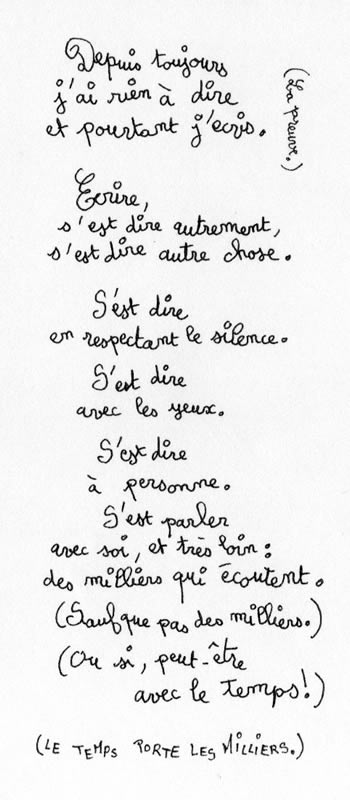 Depuis toujours
j'ai rien à dire
et pourtant j'écris.
(La preuve.)
Ecrire,
s'est dire autrement,
s'est dire autre chose.
S'est dire
en respectant le silence.
S'est dire
avec les yeux.
S'est dire
à personne.
S'est parler
avec soi, et très loin :
des milliers qui écoutent.
(Sauf que pas des milliers.)
(Ou si, peut-être
avec le temps!)
(LE TEMPS PORTE LES MILLIERS.)